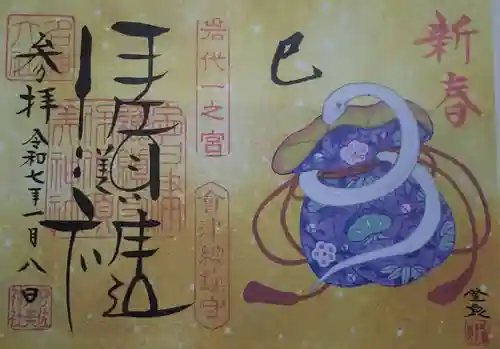 新春
巳
岩代一之宮
會津総鎮守
伊佐須美神社
参拝
令和七年一月八日